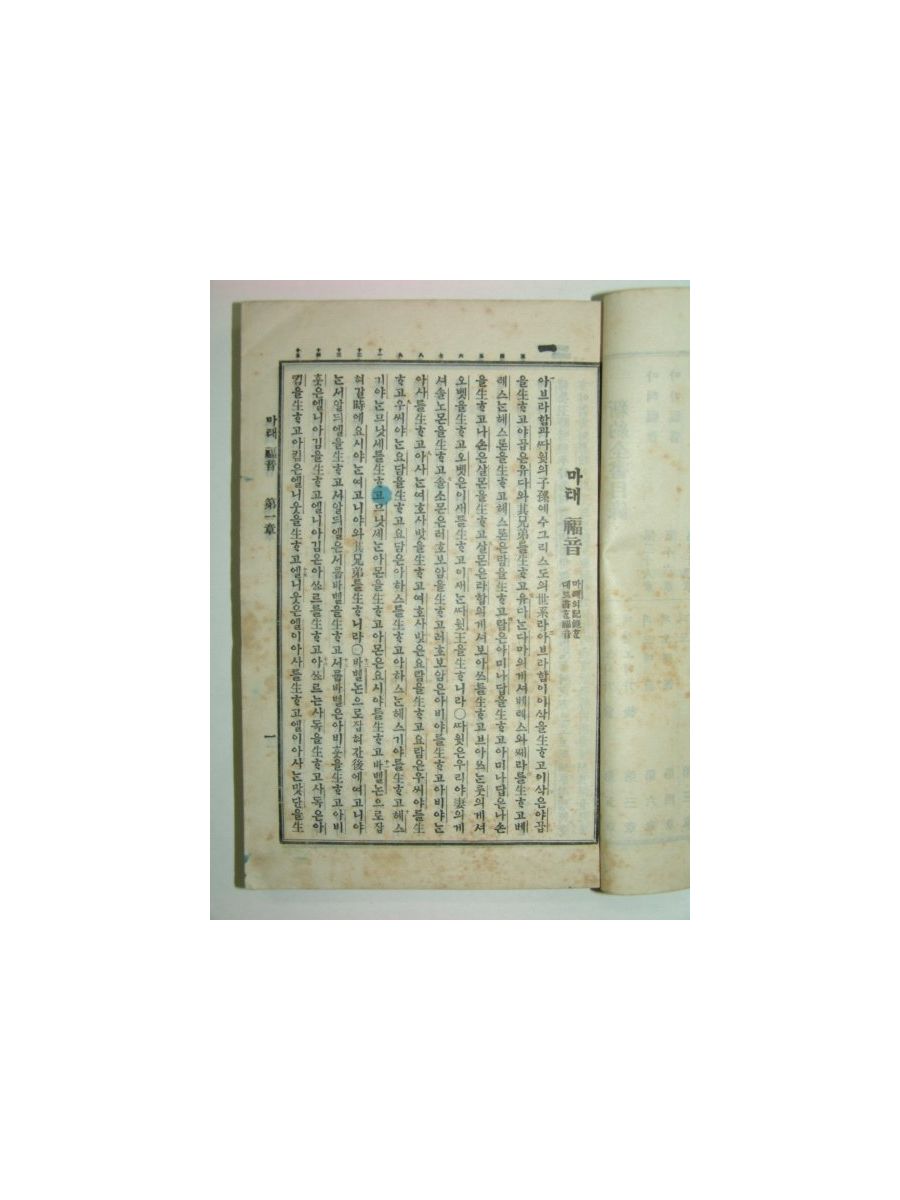 마태 福音
마태의記錄ᄒᆞᆫ
대로書ᄒᆞᆫ福音
一
아브라함과ᄯᅡ윗의子孫예수그리스도의世系라아브라함이이삭을生ᄒᆞ고이삭은야곱
을生ᄒᆞ고야곱은유다와其兄弟를生ᄒᆞ고유다ᄂᆞᆫ다마의게셔베레스와쎄라를生ᄒᆞ고베
레스ᄂᆞᆫ헤스론을生ᄒᆞ고헤스론은람을生ᄒᆞ고람은아미나답을生ᄒᆞ고아미나답은나손
을生ᄒᆞ고나손은살몬을生ᄒᆞ고살몬은라합의게셔보아쓰를生ᄒᆞ고보아쓰ᄂᆞᆫ룻의게셔
오벳을生ᄒᆞ고오벳은이새를生ᄒᆞ고이새ᄂᆞᆫᄯᅡ윗王을生ᄒᆞ니라〇ᄯᅡ윗은우리야妻의게
셔솔노몬을生ᄒᆞ고솔노몬은러호보암을生ᄒᆞ고러호보암은아비야를生ᄒᆞ고아비야ᄂᆞᆫ
아사를生ᄒᆞ고아사ᄂᆞᆫ여호사밧을生ᄒᆞ고여호사밧은요람을生ᄒᆞ고요람은우씨야를生
ᄒᆞ고우씨야ᄂᆞᆫ요담을生ᄒᆞ고요담은아하스를生ᄒᆞ고아하스ᄂᆞᆫ헤스기야를生ᄒᆞ고헤스
기야ᄂᆞᆫ므낫세를生ᄒᆞ고므낫세ᄂᆞᆫ아몬을生ᄒᆞ고아몬은요시야를生ᄒᆞ고바벨논으로잡
혀갈時에요시야ᄂᆞᆫ여고니야와其兄弟를生ᄒᆞ니라〇바벨논으로잡혀간後에여고니야
ᄂᆞᆫ서알듸엘을生ᄒᆞ고서알듸엘은서룹바벨을生ᄒᆞ고서룹바벨은아비훗을生ᄒᆞ고아비
훗은엘니아김을生ᄒᆞ고엘니아김은아쏘르를生ᄒᆞ고아쏘르는사독을生ᄒᆞ고사독은아
킴을生ᄒᆞ고아킴은엘니웃을生ᄒᆞ고엘니웃은엘이아사를生ᄒᆞ고엘이아사ᄂᆞᆫ맛단을生
마태 福音 第一章
一